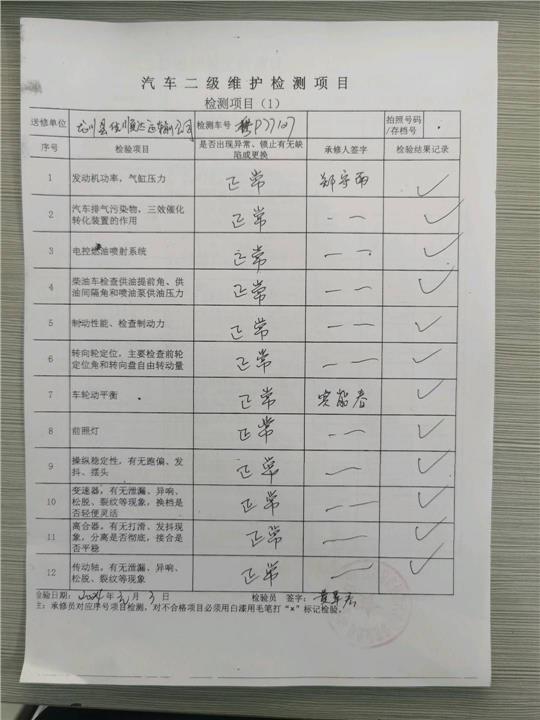 汽车二级维护检测项目
检测项目（1）
送修单位 检测车号 P77127 拍照号码/存档号
序号 检验项目 是否出现异常、锁止有无缺陷或更换 承修人签字 检验结果记录
1 发动机功率，气缸压力 正常 ✓
2 汽车排气污染物，三效催化转化装置的作用 正常 ✓
3 电控燃油喷射系统 正常 ✓
4 柴油车检查供油提前角、供油间隔角和喷油泵供油压力 正常 ✓
5 制动性能、检查制动力 正常 ✓
6 转向轮定位，主要检查前轮定位角和转向盘自由转动量 正常 ✓
7 车轮动平衡 正常 ✓
8 前照灯 正常 ✓
9 操纵稳定性，有无跑偏、发抖、摆头 正常 ✓
10 变速器，有无泄漏、异响、松脱、裂纹等现象，换档是否轻便灵活 正常 ✓
11 离合器，有无打滑、发抖现象，分离是否彻底，接合是否平稳 正常 ✓
12 传动轴，有无泄漏、异响、松脱、裂纹等现象 正常 ✓
检验日期： 年 月 3 日 检验员 签字：
注：承修员对应序号项目检测，对不合格项目必须用白漆用毛笔打“×”标记检验。